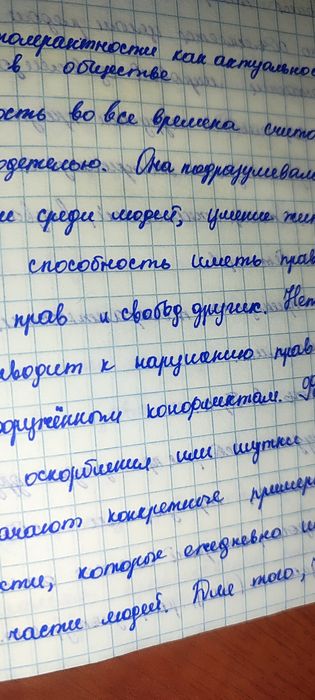 толерантности как актуальнос
в обществе
ость во все времена счита
одетелью. Она подразумевал
ие среди людей, умение жит
способность иметь прав
прав и свобод других. Нет
иводит к нарушению прав
оружённым конфликтам.
оскорбления или шутки
ачают конкретные пример
сти, которые ежедневно и
части людей. Для того,